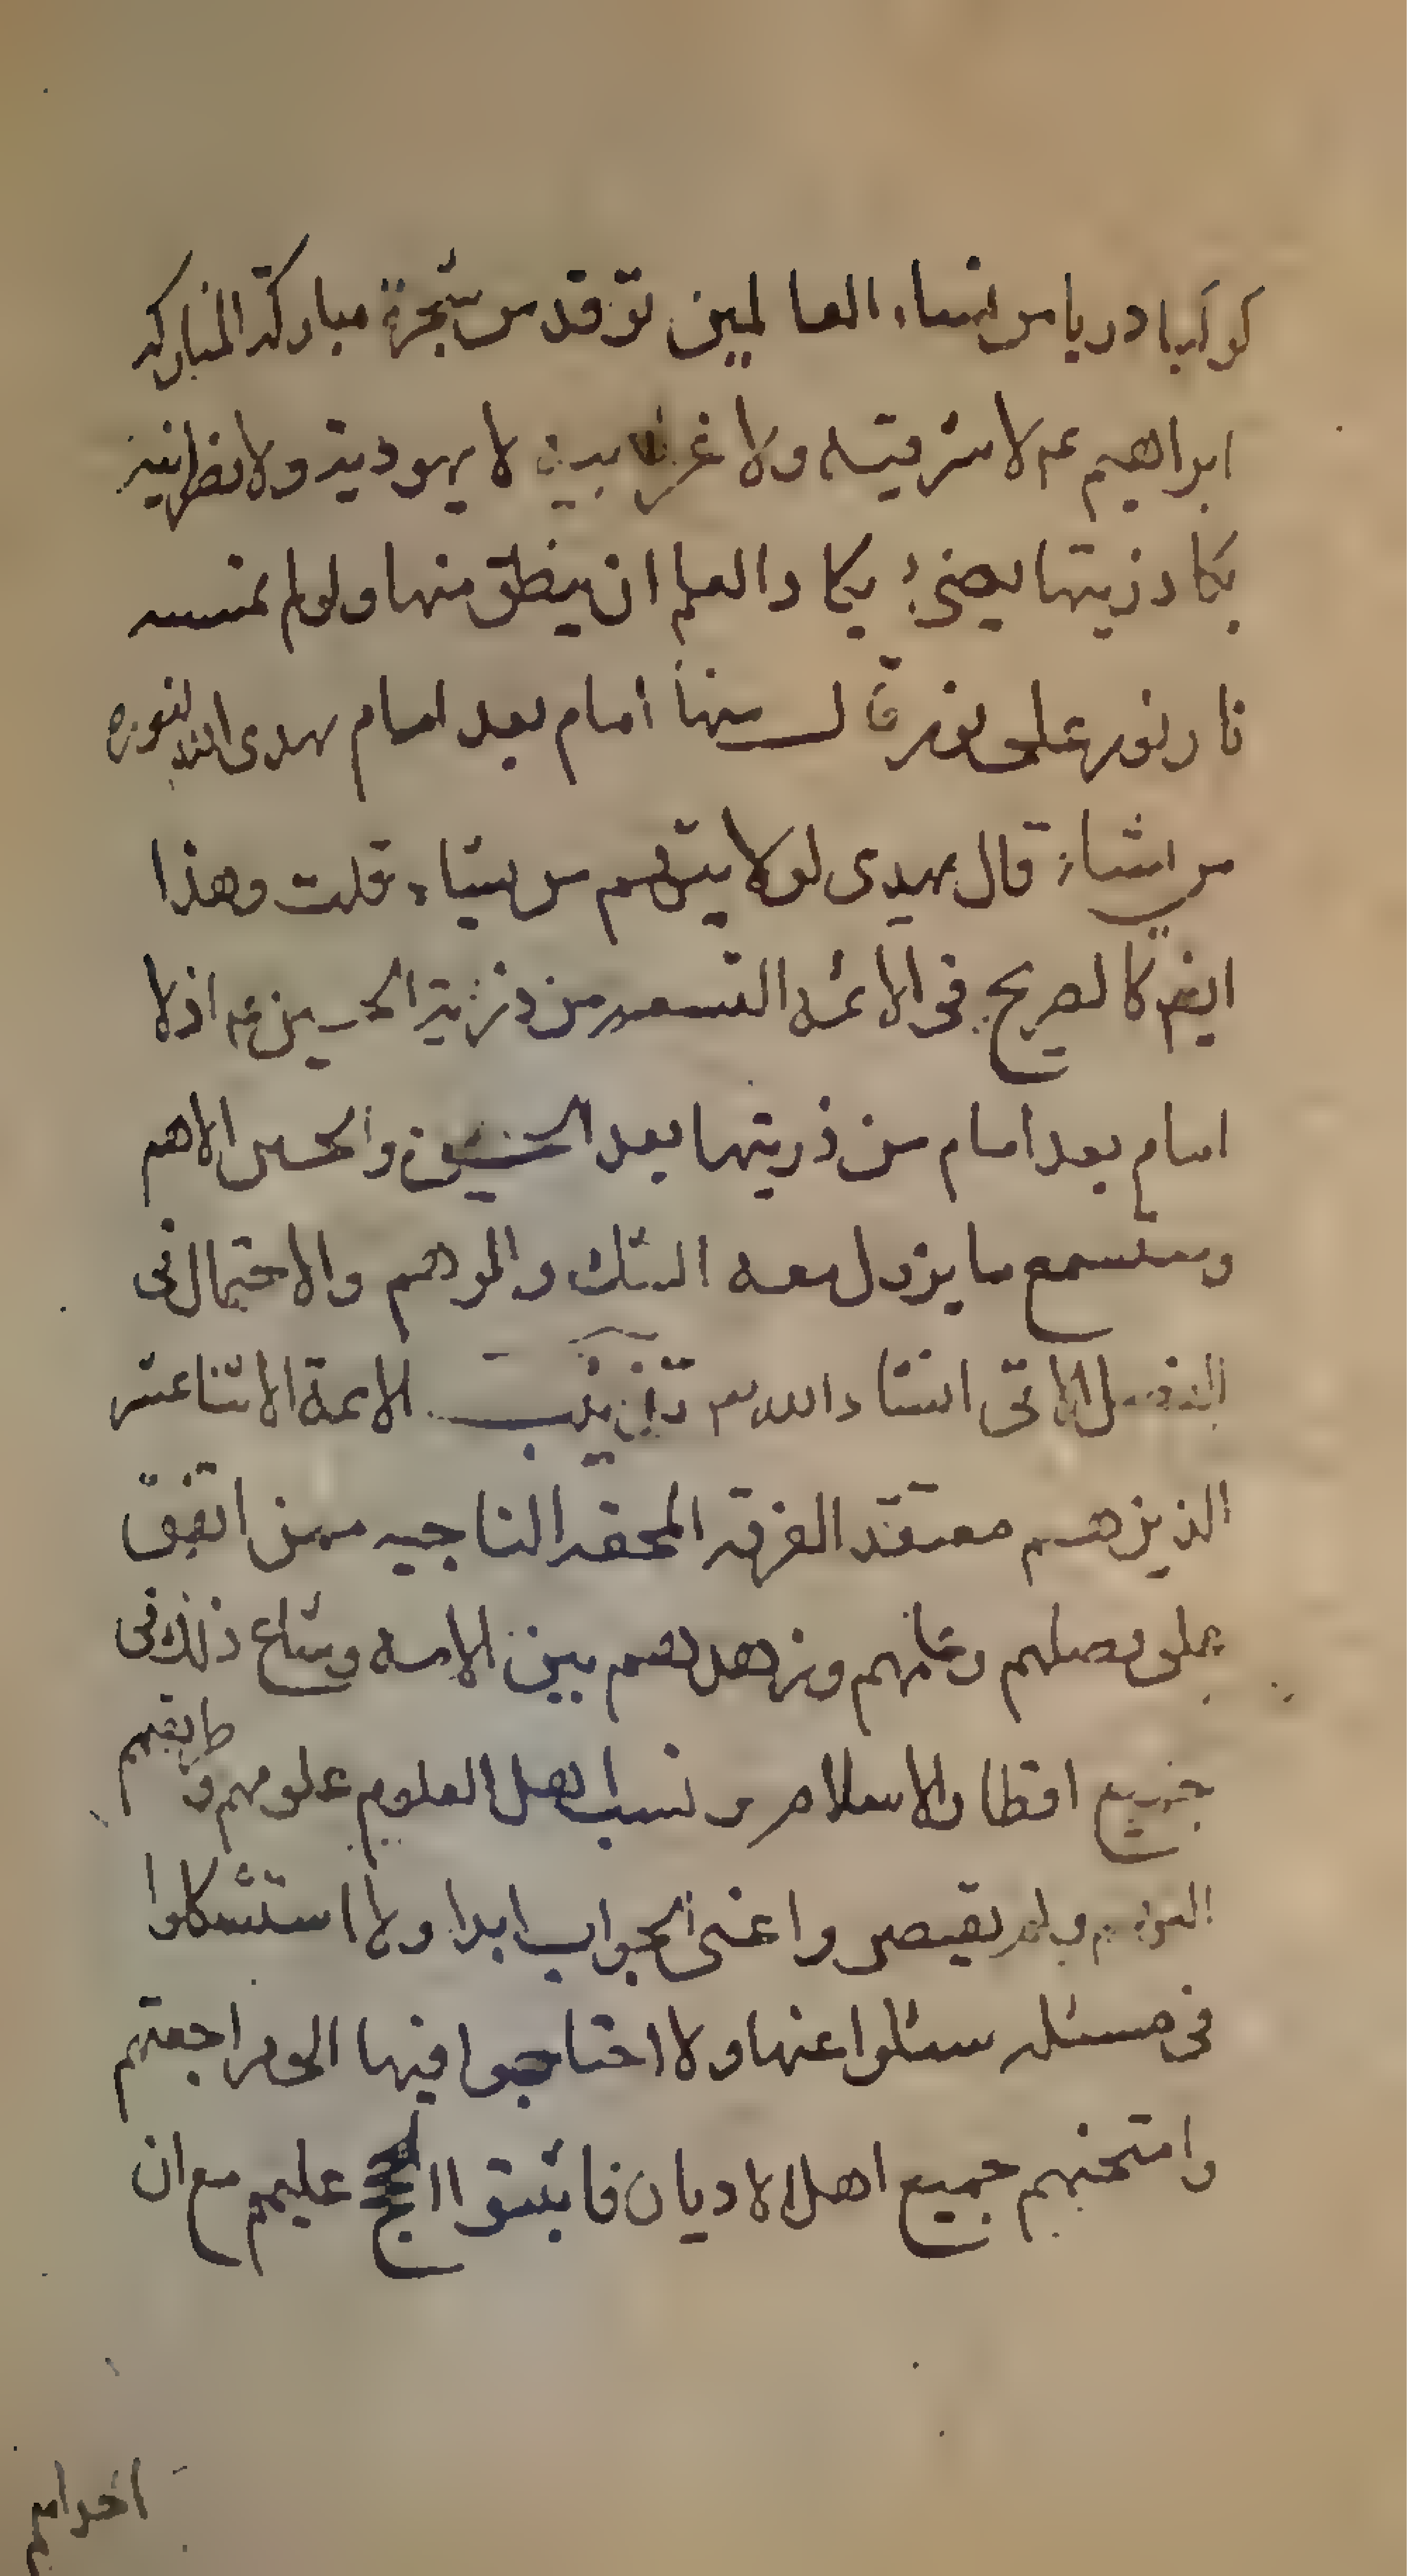 كوكبا دريا من نساء العالمين توقد من شجرة مباركة المباركه
ابراهيم ع لا شرقيه ولا غربيه لا يهودية ولا نصرانية
يكاد زيتها يضئ يكاد العلم ان ينطق منها ولو لم تمسسه
نار نور على نور قال منها امام بعد امام يهدى الله لنوره
من يشاء قال يهدى لولايتهم من يشاء قلت وهذا
ايض كالصريح فى الائمه التسعه من ذرية الحسين ع اذ لا
امام بعد امام من ذريتها بعد الحسن والحسين الا هم
وستسمع ما يزول معه الشك والوهم والاحتمال فى
الاتى انشاء الله تع الائمة الاثنا عشر
الذين هم معتقد الفرقه المحقه الناجيه ممن اتفق
على فضلهم وعلمهم وزهدهم بين الامه وشاع ذلك فى
جميع اقطار الاسلام و نسب اهل العلوم علومهم وطريقهم
اليهم ولم يقصروا عن الجواب ابدا ولا استشكلوا
فى مسئله سئلوا عنها ولا احتاجوا فيها الى مراجعتهم
وامتحنهم جميع اهل الاديان فاثبتوا الحجج عليهم مع ان